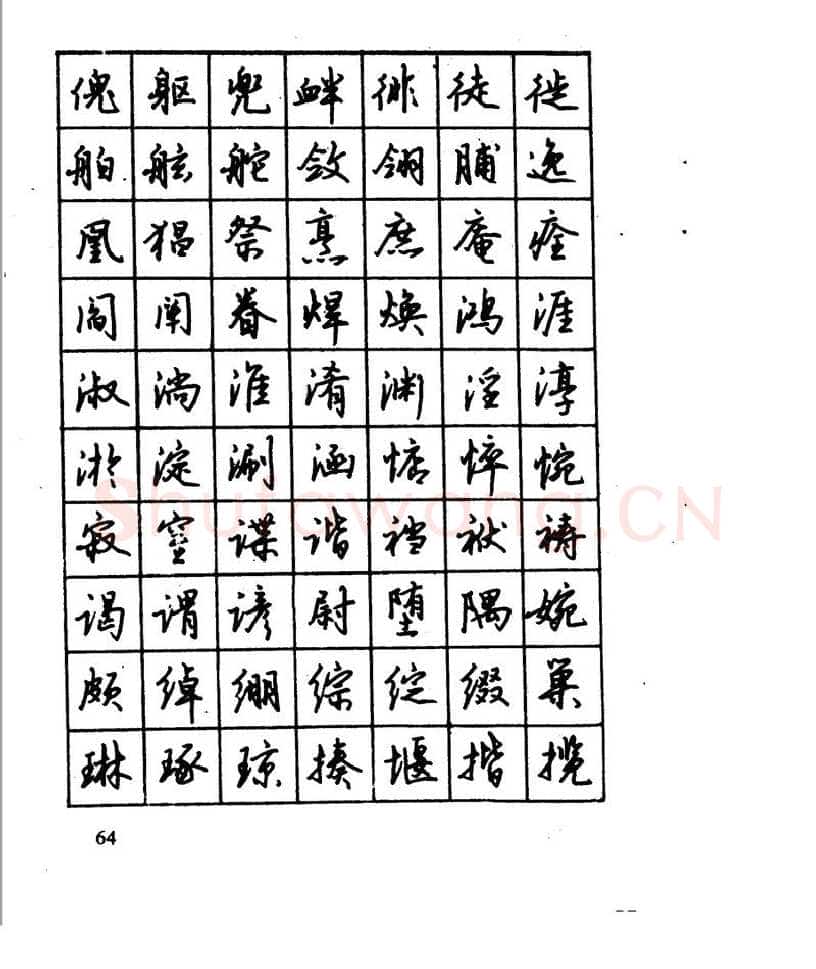 傀 躯 兜 衅 徘 徒 徙
舶 舷 舵 敛 翎 脯 逸
凰 猖 祭 烹 庶 庵 痊
阎 阐 眷 焊 焕 鸿 涯
淑 淌 淮 淆 渊 淫 淳
淤 淀 涮 涵 惦 悴 惋
寂 窒 谍 谐 裆 袱 祷
谒 谓 谚 尉 堕 隅 婉
颇 绰 绷 综 绽 缀 巢
琳 琢 琼 揍 堰 揩 揽
64
Shufawang.CN